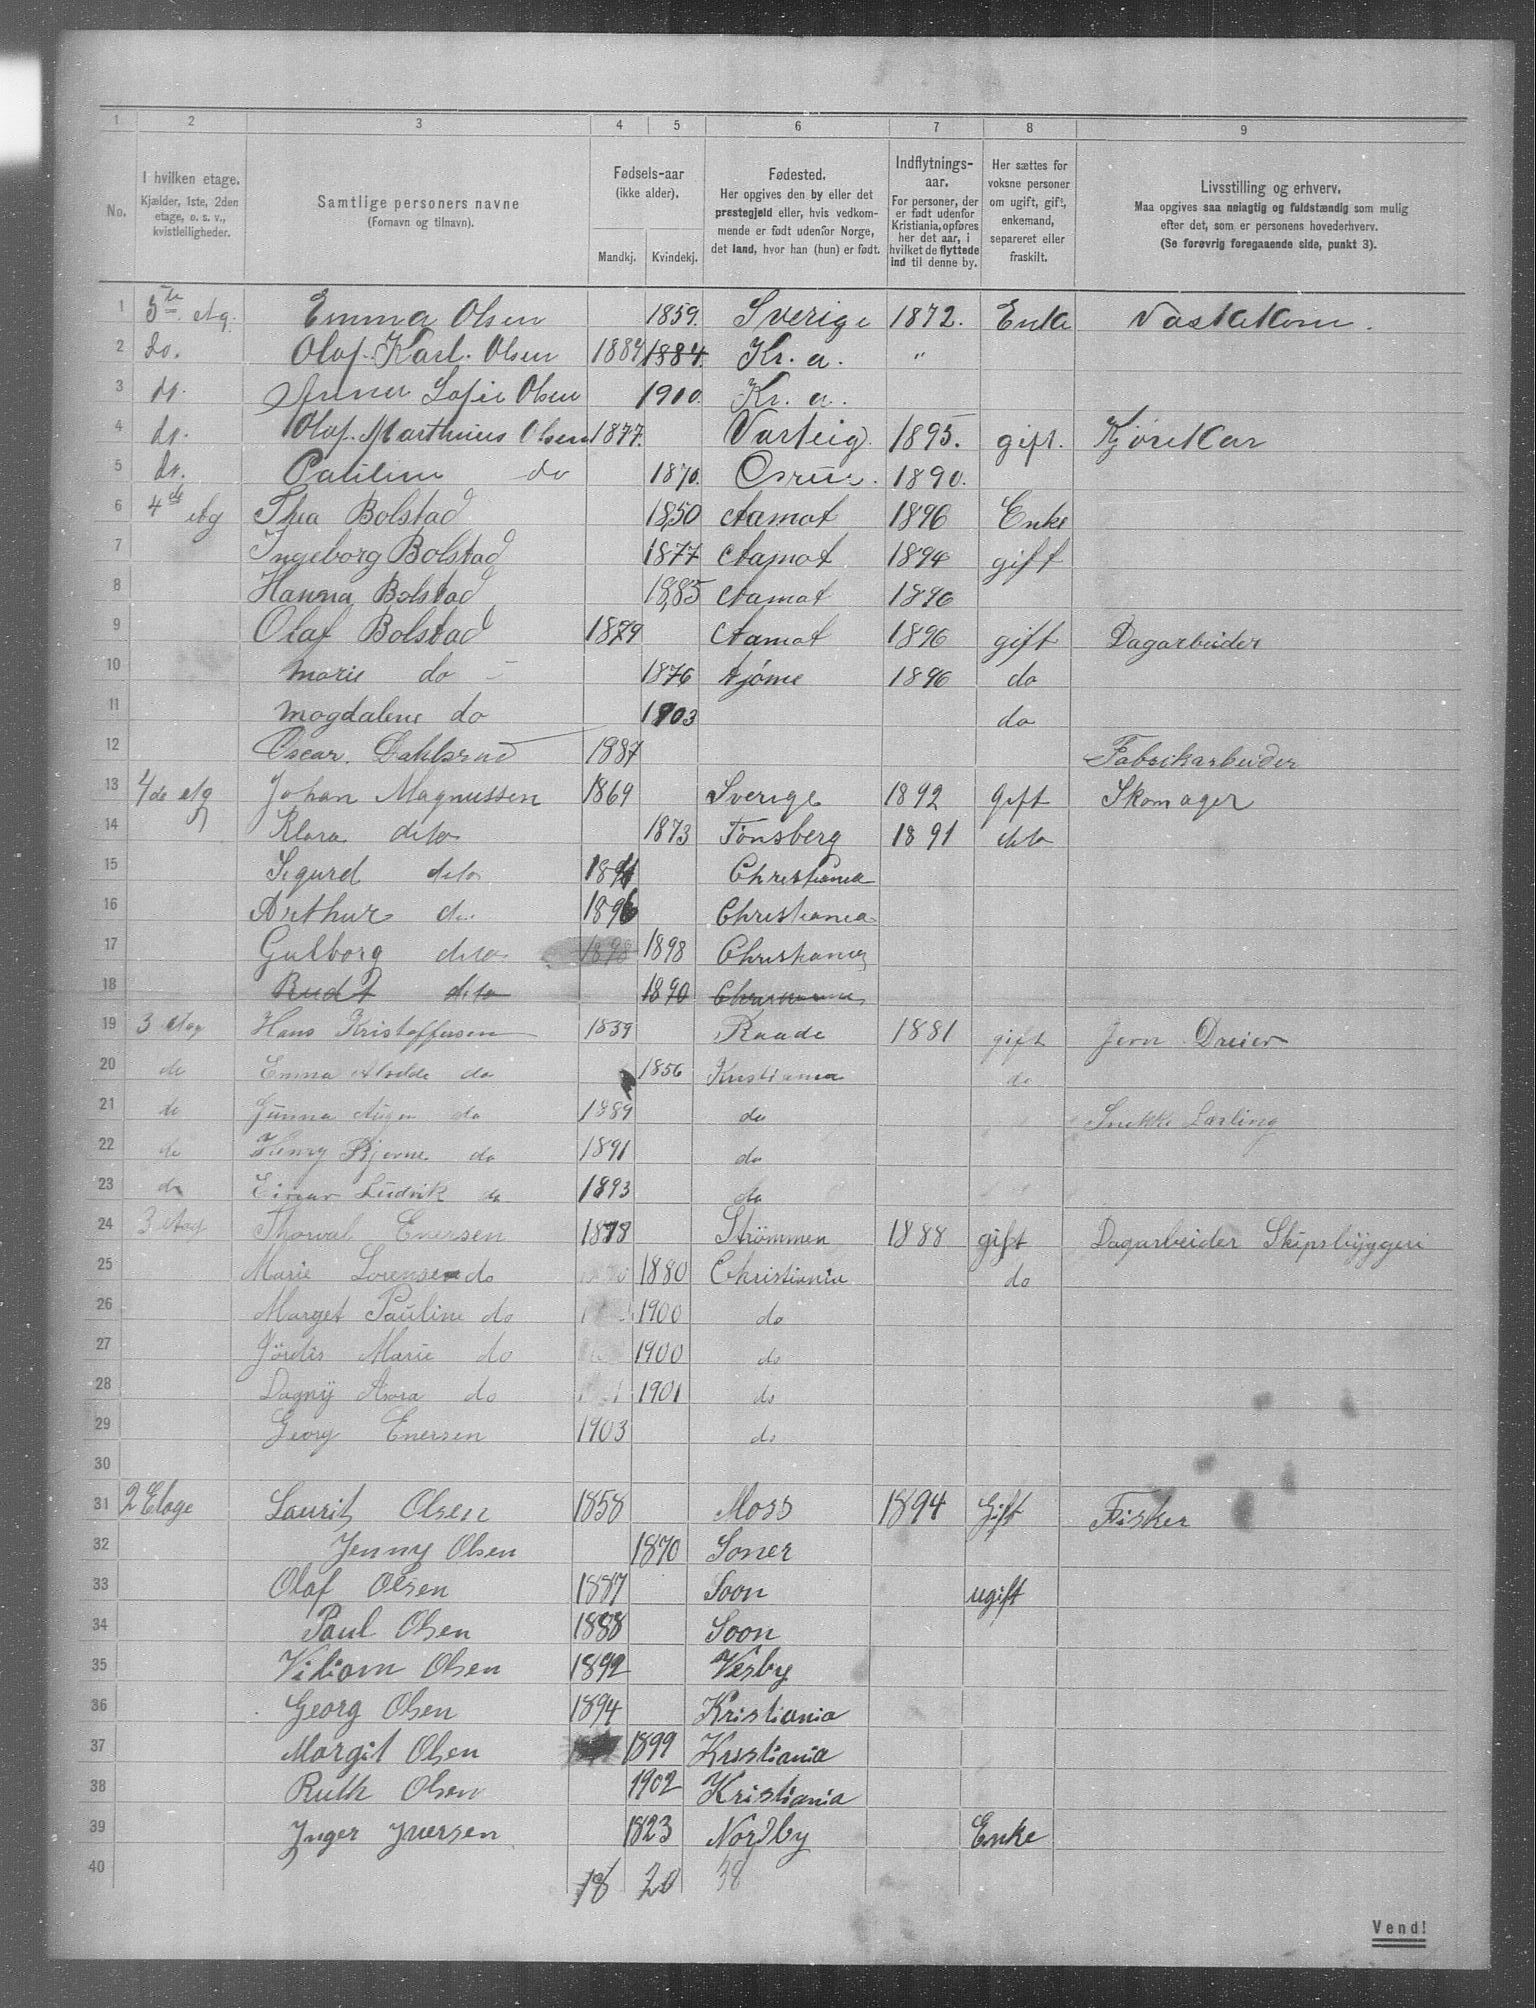 1 2 3 4 5 6 7 8 9
No.
I hvilken etage.
Kjælder, 1ste, 2den
etage, o. s. v.,
kvistleiligheder.
Samtlige personers navne
(Fornavn og tilnavn).
Fødsels-aar
(ikke alder).
Mandkj. Kvindekj.
Fødested.
Her opgives den by eller det
prestegjeld eller, hvis vedkom-
mende er født udenfor Norge,
det land, hvor han (hun) er født.
Indflytnings-
aar.
For personer, der
er født udenfor
Kristiania, opføres
her det aar, i
hvilket de flyttede
ind til denne by.
Her sættes for
voksne personer
om ugift, gift,
enkemand,
separeret eller
fraskilt.
Livsstilling og erhverv.
Maa opgives saa nøiagtig og fuldstændig som mulig
efter det, som er personens hovederhverv.
(Se forøvrig foregaaende side, punkt 3).
1 5te etg. Emma Olsen 1859. Sverige 1872. Enke Vaskekone.
2 do. Olaf Karl. Olsen 1884 1884. Kr. a. "
3 do. Anna Sofie Olsen 1900. Kr. a.
4 do. Olaf. Marthinius Olsen 1877. Varteig 1895. gift. Kjørekar
5 do. Pauline do 1870. 1890.
6 4de etg Thea Bolstad 1850 Aamot 1896 Enke
7 Ingeborg Bolstad 1877 Aamot 1894 gift
8 Hanna Bolstad 1885 Aamot 1896
9 Olaf Bolstad 1879 Aamot 1896 gift Dagarbeider
10 Marie do - 1876 Tjøme 1896 do
11 Magdalene do 1903 do
12 Oscar. 1887 Fabrikarbeider
13 4de etg Johan Magnussen 1869 Sverige 1892 Gift Skomager
14 Klara dito 1873 Tønsberg 1891 dito
15 Sigurd dito Christiania
16 Arthur do 1896 Christiania
17 Gulborg dito 1898 1898 Christiania
18 Rudt dito 1890 Christiania
19 3 etag Hans Kristoffersen 1839 Raade 1881 gift Jern Dreier
20 do Emma do 1856 Kristiania do
21 do Gunna do 1889 do Snekke Lærling
22 do Henry Bjerne do 1891 do
23 do Einar Ludvik do 1893 do
24 3 etag Thorval Enersen 1878 Strømmen 1888 gift Dagarbeider Skipsbyggeri
25 Marie Lorense do 1880 Christiania do
26 Marget Pauline do 1900 do
27 Jördis Marie do 1900 do
28 Dagny do 1901 do
29 Georg Enersen 1903 do
30
31 2 Etage Laurits Olsen 1858 Moss 1894 Gift Fisker
32 Jenny Olsen 1870 Soner
33 Olaf Olsen 1887 Soon ugift
34 Paul Olsen 1888 Soon
35 Viliam Olsen 1892 Vesby
36 Georg Olsen 1894 Kristiania
37 Margit Olsen 1899 Kristiania
38 Ruth Olsen 1902 Kristiania
39 Inger Iversen 1823 Nordby Enke
40 18 20 38
Vend!